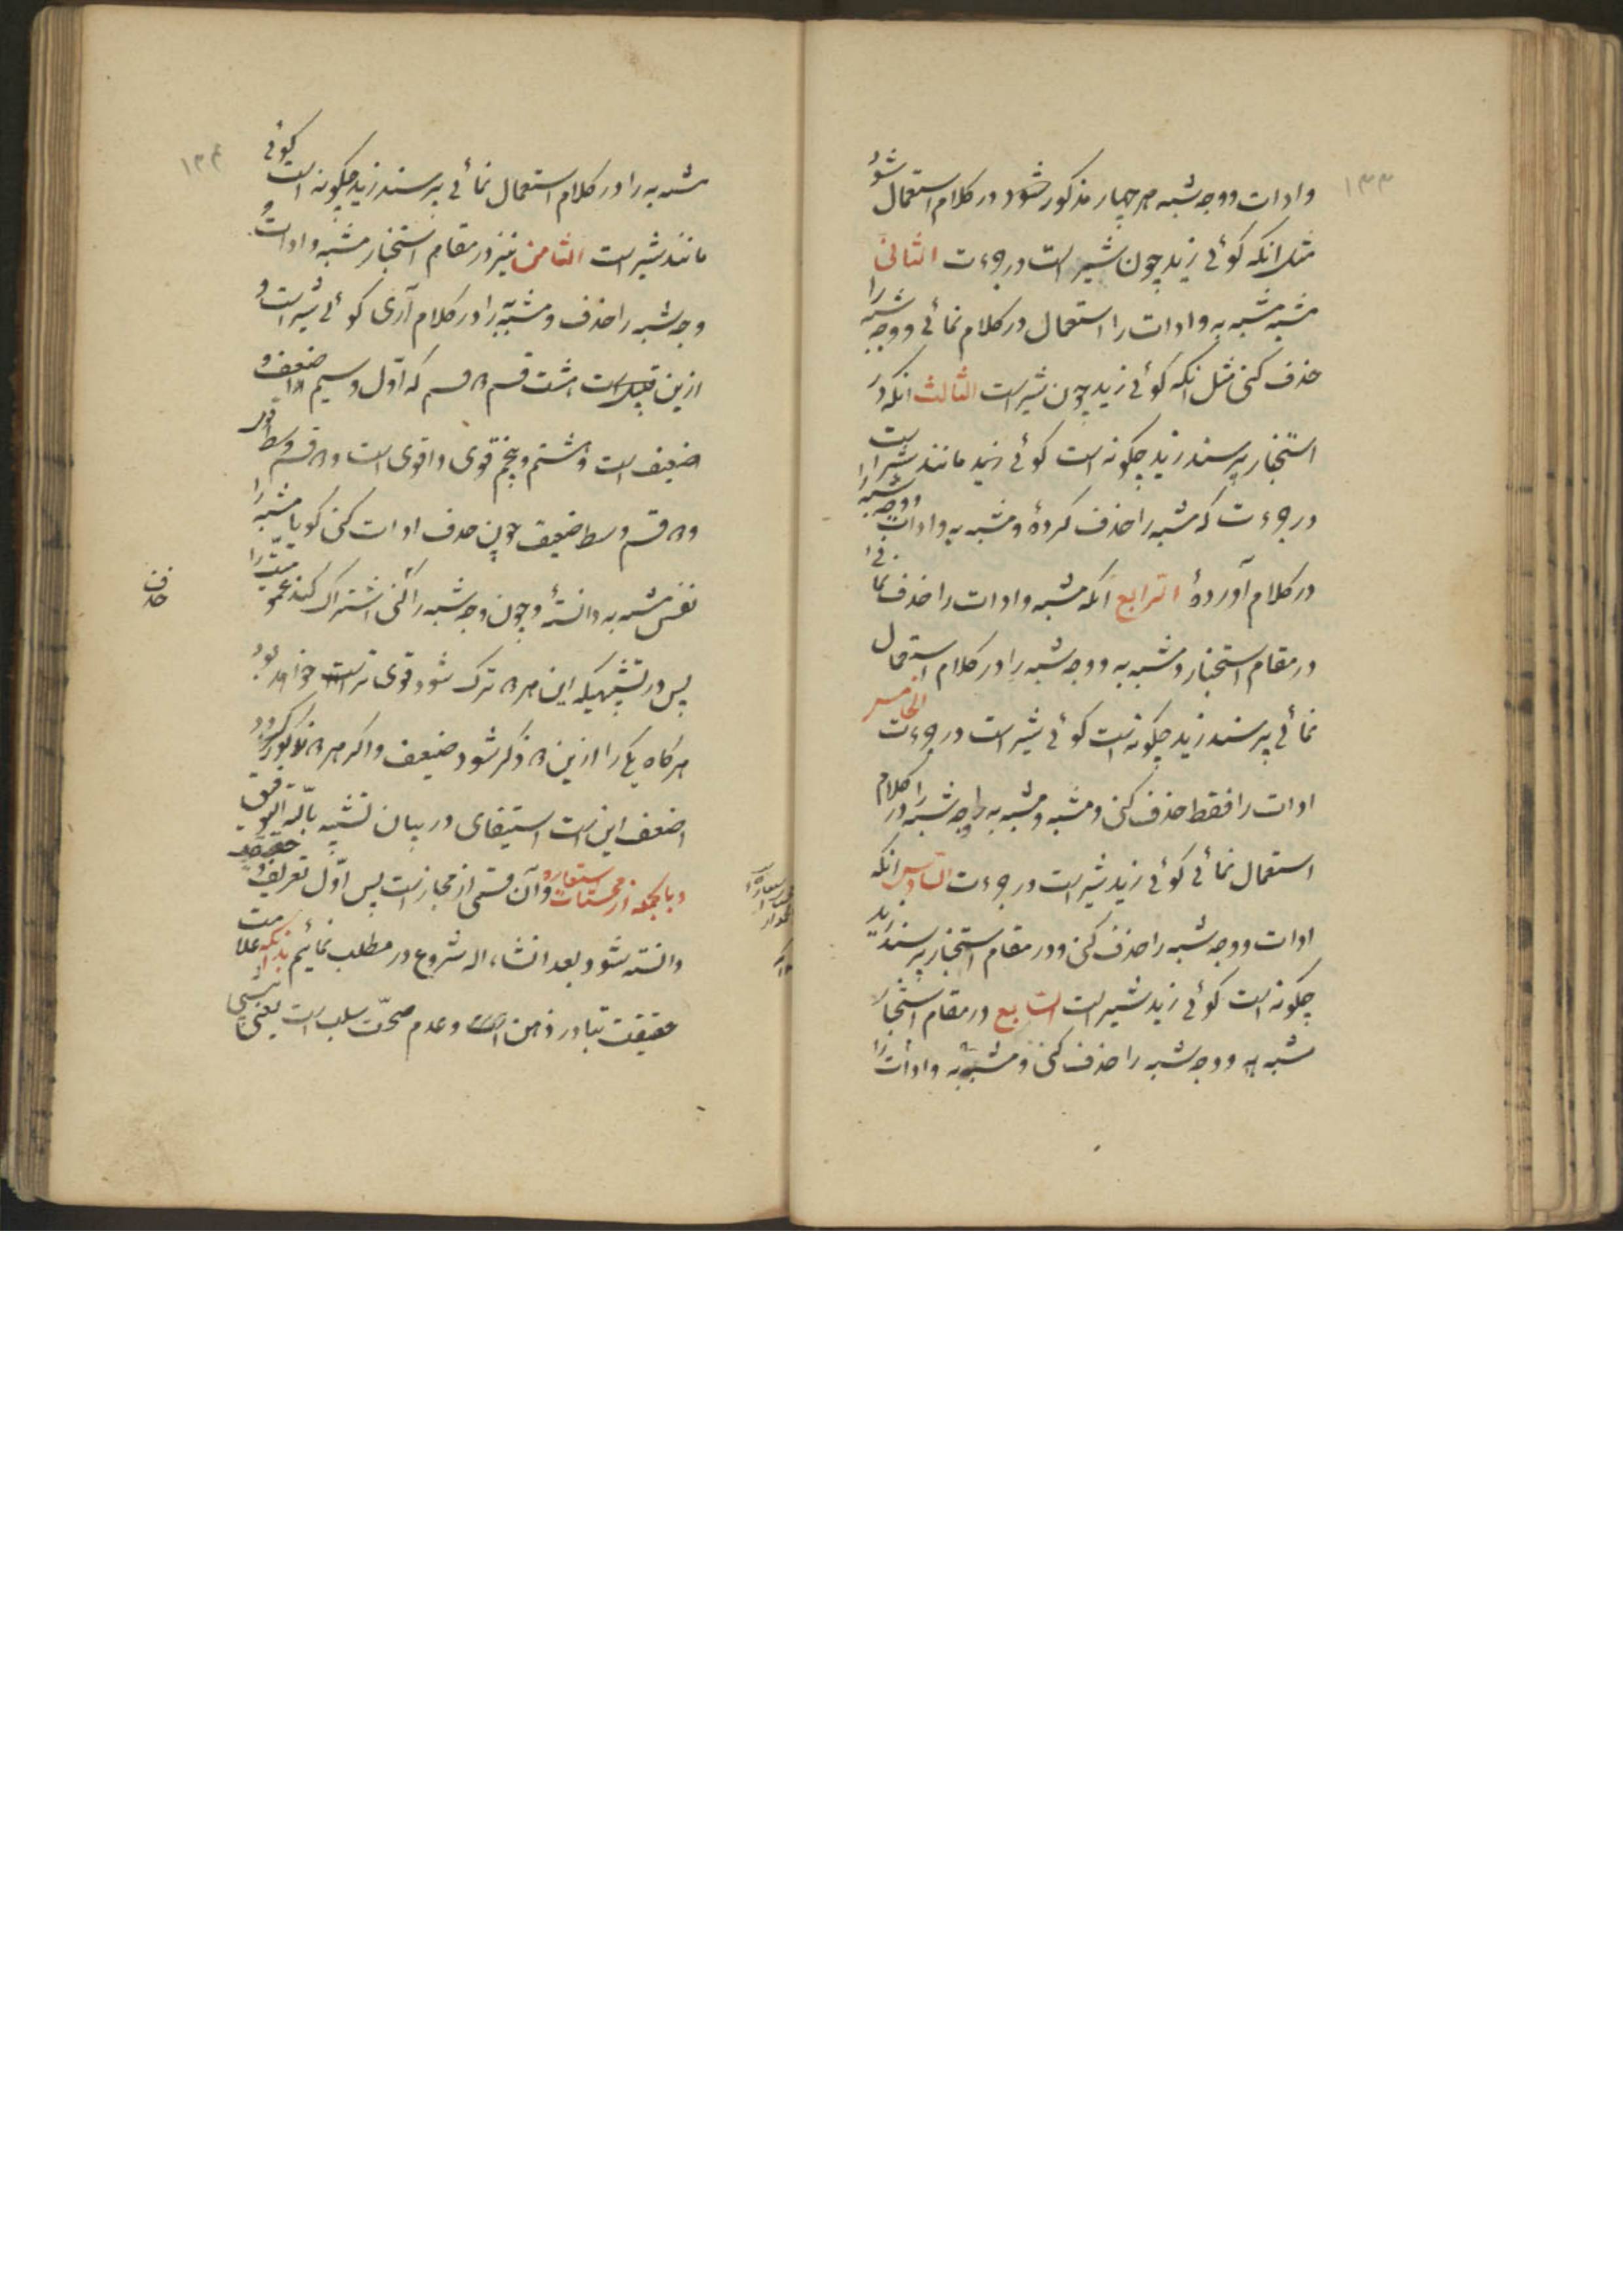 ۱۳۳
وادات ووجه شبه هر چهار مذکور شود در کلام استعمال شود
مثل انکه کوئی زید چون شیر است در جرءت الثانی
مشبه مشبه به وادات را استعمال در کلام نمائی ووجه شبه را
حذف کنی مثل انکه کوئی زید چون شیر است الثالث انکه در
استخبار پرسند زید چکونه است کوئی مانند شیر است
در جرءت که مشبه را حذف کردهٔ ومشبه به وادات ووجه شبه را
در کلام آوردهٔ الرابع انکه مشبه وادات را حذف نمائی
در مقام استخبار ومشبه به ووجه شبه را در کلام استعمال
نمائی پرسند زید چکونه است کوئی شیر است در جرءت الخامس
ادات را فقط حذف کنی ومشبه ومشبه به ووجه شبه را در کلام
استعمال نمائی کوئی زید شیر است در جرءت السادس انکه
ادات ووجه شبه را حذف کنی ودر مقام استخبار پرسند زید
چکونه است کوئی زید شیر است السابع در مقام استخبار
مشبه به ووجه شبه را حذف کنی ومشبه به وادات را
۱۳۴
مشبه به را در کلام استعمال نمائی پرسند زید چکونه است کوئی
مانند شیر است الثامن نیز در مقام استخبار مشبه وادات و
وجه شبه را حذف ومشبه به را در کلام آری کوئی شیر است و
ازین قبیل است هشت قسم ۲ قسم که اوّل وسیم است ضعف و
ضعیف است وهشتم وپنجم قوی واقوی است و۲ قسم وسط
و۲ قسم وسط ضعیف چون حذف ادات کنی کویا مشبه را
نفس مشبه به دانستهٔ وچون وجه شبه را کنی اشتراک کند
حذف
پس در تشبیهیکه این هر ۲ ترک شود قوی تر است خواهد بود
هر کاه یکی را ازین ۲ ذکر شود ضعیف واکر هر ۲ مذکور کردد
اضعف این است استیفای در بیان تشبیه بالله التوفیق
وبالجمله از محسنات استعاره وآن قسمی از مجاز است پس اوّل تعریف حقیقت
دانسته شود بعد انشاء اله شروع در مطلب نمائیم بدانکه علامت
حقیقت تبادر ذهن است وعدم صحّت سلب است یعنی